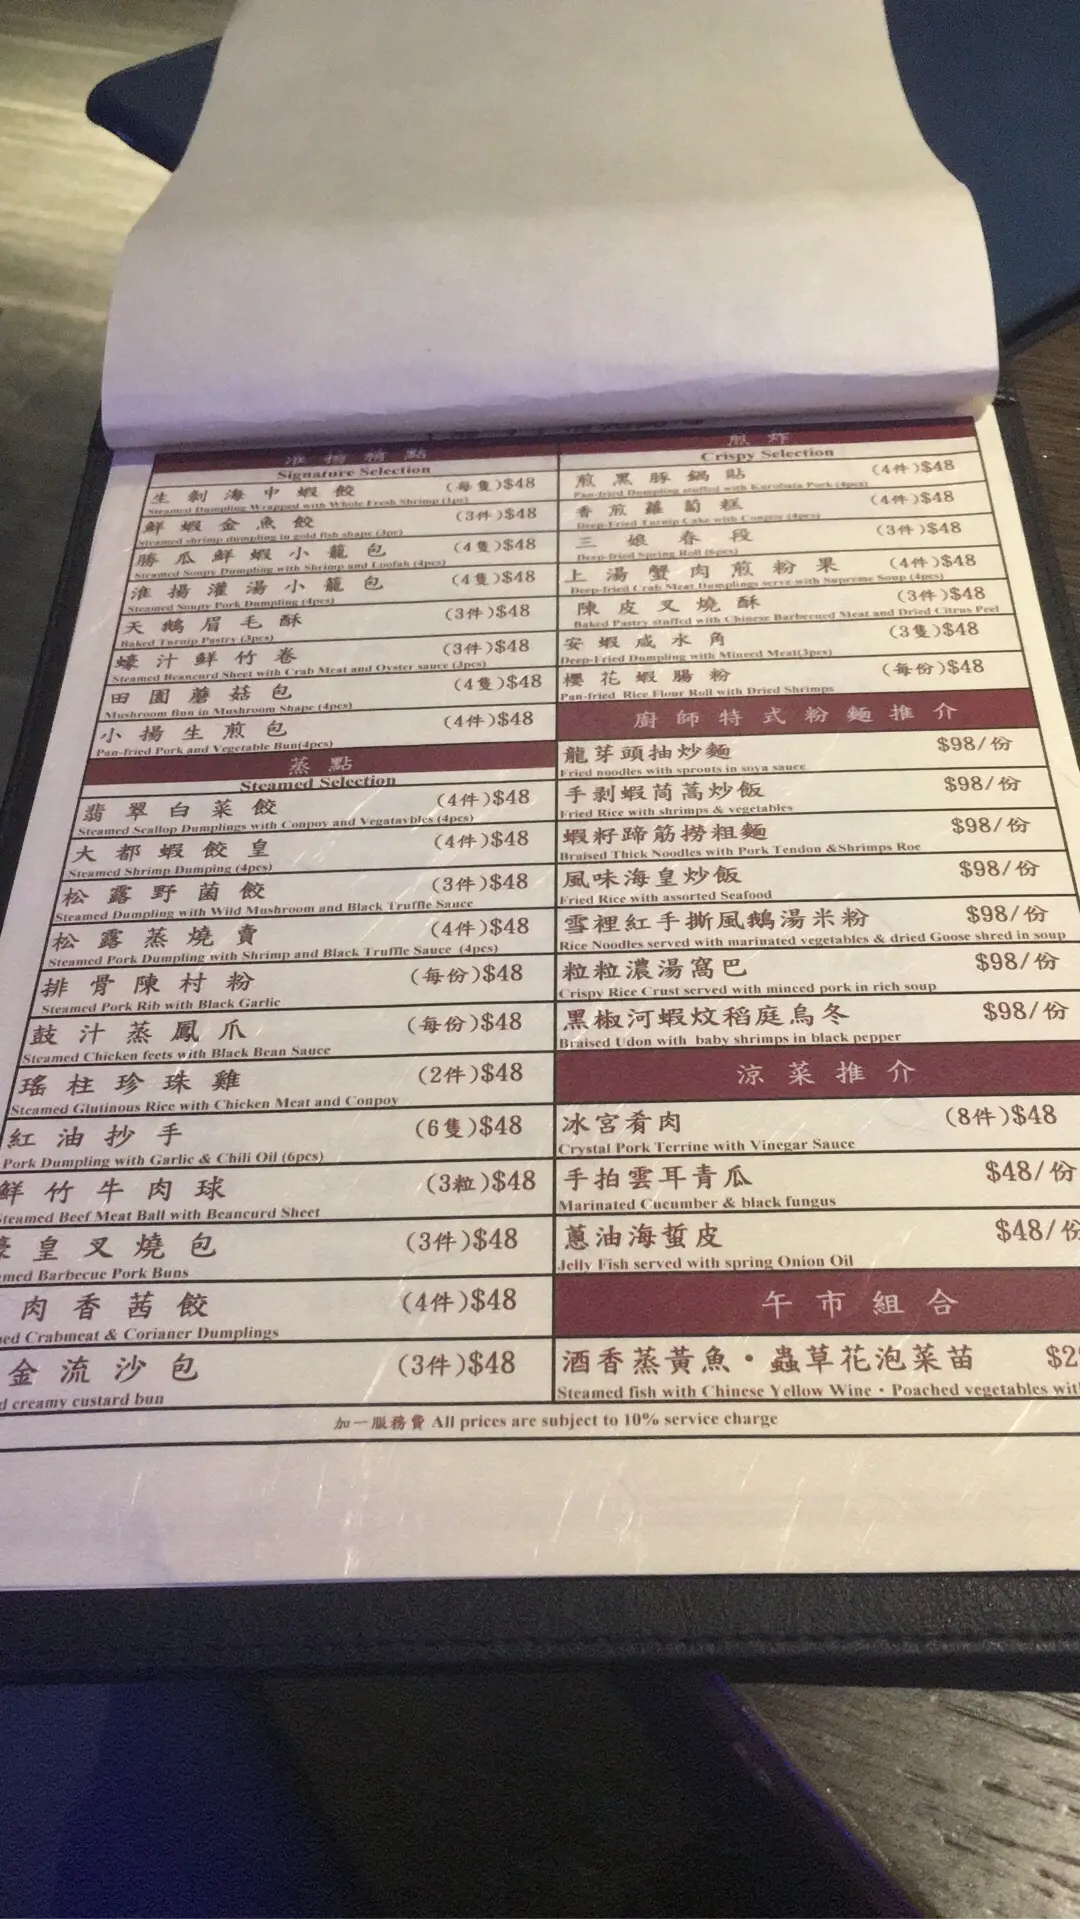 淮揚精點
Signature Selection
生剝海中蝦餃 (每隻)$48
Steamed Dumpling Wrapped with Whole Fresh Shrimp (1pc)
鮮蝦金魚餃 (3件)$48
Steamed shrimp dumpling in gold fish shape (3pc)
勝瓜鮮蝦小籠包 (4隻)$48
Steamed Soupy Dumpling with Shrimp and Loofah (4pcs)
淮揚灌湯小籠包 (4隻)$48
Steamed Soupy Pork Dumpling (4pcs)
天鵝眉毛酥 (3件)$48
Baked Turnip Pastry (3pcs)
蠔汁鮮竹卷 (3件)$48
Steamed Beancurd Sheet with Crab Meat and Oyster sauce (3pcs)
田園蘑菇包 (4隻)$48
Mushroom Bun in Mushroom Shape (4pcs)
小揚生煎包 (4件)$48
Pan-fried Pork and Vegetable Bun(4pcs)
蒸點
Steamed Selection
翡翠白菜餃 (4件)$48
Steamed Scallop Dumplings with Conpoy and Vegataybles (4pcs)
大都蝦餃皇 (4件)$48
Steamed Shrimp Dumping (4pcs)
松露野菌餃 (3件)$48
Steamed Dumpling with Wild Mushroom and Black Truffle Sauce
松露蒸燒賣 (4件)$48
Steamed Pork Dumpling with Shrimp and Black Truffle Sauce (4pcs)
排骨陳村粉 (每份)$48
Steamed Pork Rib with Black Garlic
鼓汁蒸鳳爪 (每份)$48
Steamed Chicken feets with Black Bean Sauce
瑤柱珍珠雞 (2件)$48
Steamed Glutinous Rice with Chicken Meat and Conpoy
紅油抄手 (6隻)$48
Pork Dumpling with Garlic & Chili Oil (6pcs)
鮮竹牛肉球 (3粒)$48
Steamed Beef Meat Ball with Beancurd Sheet
皇叉燒包 (3件)$48
med Barbecue Pork Buns
肉香茜餃 (4件)$48
ed Crabmeat & Corianer Dumplings
金流沙包 (3件)$48
d creamy custard bun
煎炸
Crispy Selection
煎黑豚鍋貼 (4件)$48
Pan-fried Dumpling stuffed with Kurobata Pork (4pcs)
香煎蘿蔔糕 (4件)$48
Deep-Fried Turnip Cake with Conpoy (4pcs)
三娘春段 (3件)$48
Deep-fried Spring Roll (6pcs)
上湯蟹肉煎粉果 (4件)$48
Deep-fried Crab Meat Dumplings serve with Supreme Soup (4pcs)
陳皮叉燒酥 (3件)$48
Baked Pastry stuffed with Chinese Barbecued Meat and Dried Citrus Peel
安蝦咸水角 (3隻)$48
Deep-Fried Dumpling with Minced Meat(3pcs)
櫻花蝦腸粉 (每份)$48
Pan-fried Rice Flour Roll with Dried Shrimps
廚師特式粉麵推介
龍芽頭抽炒麵 $98/份
Fried noodles with sprouts in soya sauce
手剝蝦茼蒿炒飯 $98/份
Fried Rice with shrimps & vegetables
蝦籽蹄筋撈粗麵 $98/份
Braised Thick Noodles with Pork Tendon &Shrimps Roe
風味海皇炒飯 $98/份
Fried Rice with assorted Seafood
雪裡紅手撕風鵝湯米粉 $98/份
Rice Noodles served with marinated vegetables & dried Goose shred in soup
粒粒濃湯窩巴 $98/份
Crispy Rice Crust served with minced pork in rich soup
黑椒河蝦炆稻庭烏冬 $98/份
Braised Udon with baby shrimps in black pepper
涼菜推介
冰宮肴肉 (8件)$48
Crystal Pork Terrine with Vinegar Sauce
手拍雲耳青瓜 $48/份
Marinated Cucumber & black fungus
蔥油海蜇皮 $48/份
Jelly Fish served with spring Onion Oil
午市組合
酒香蒸黃魚・蟲草花泡菜苗
Steamed fish with Chinese Yellow Wine・Poached vegetables wit
加一服務費 All prices are subject to 10% service charge